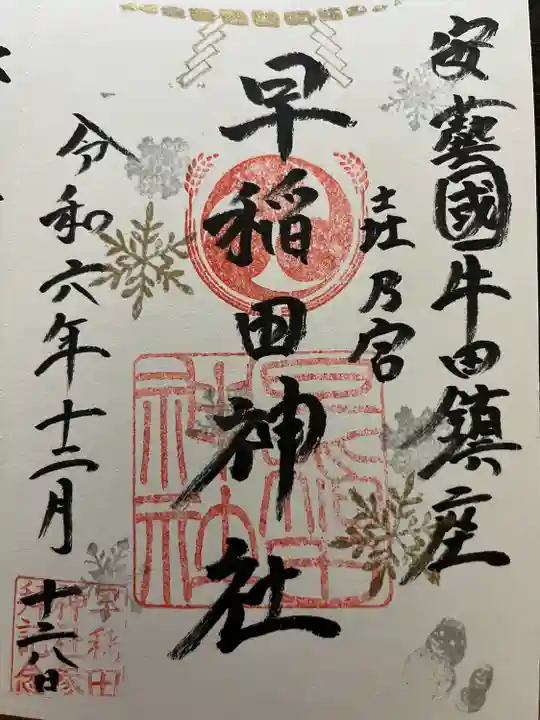 安藝國牛田鎮座
乃宮
早稲田神社
令和六年十二月
日
早稲田
神社
早稲田
神社参
拝記念